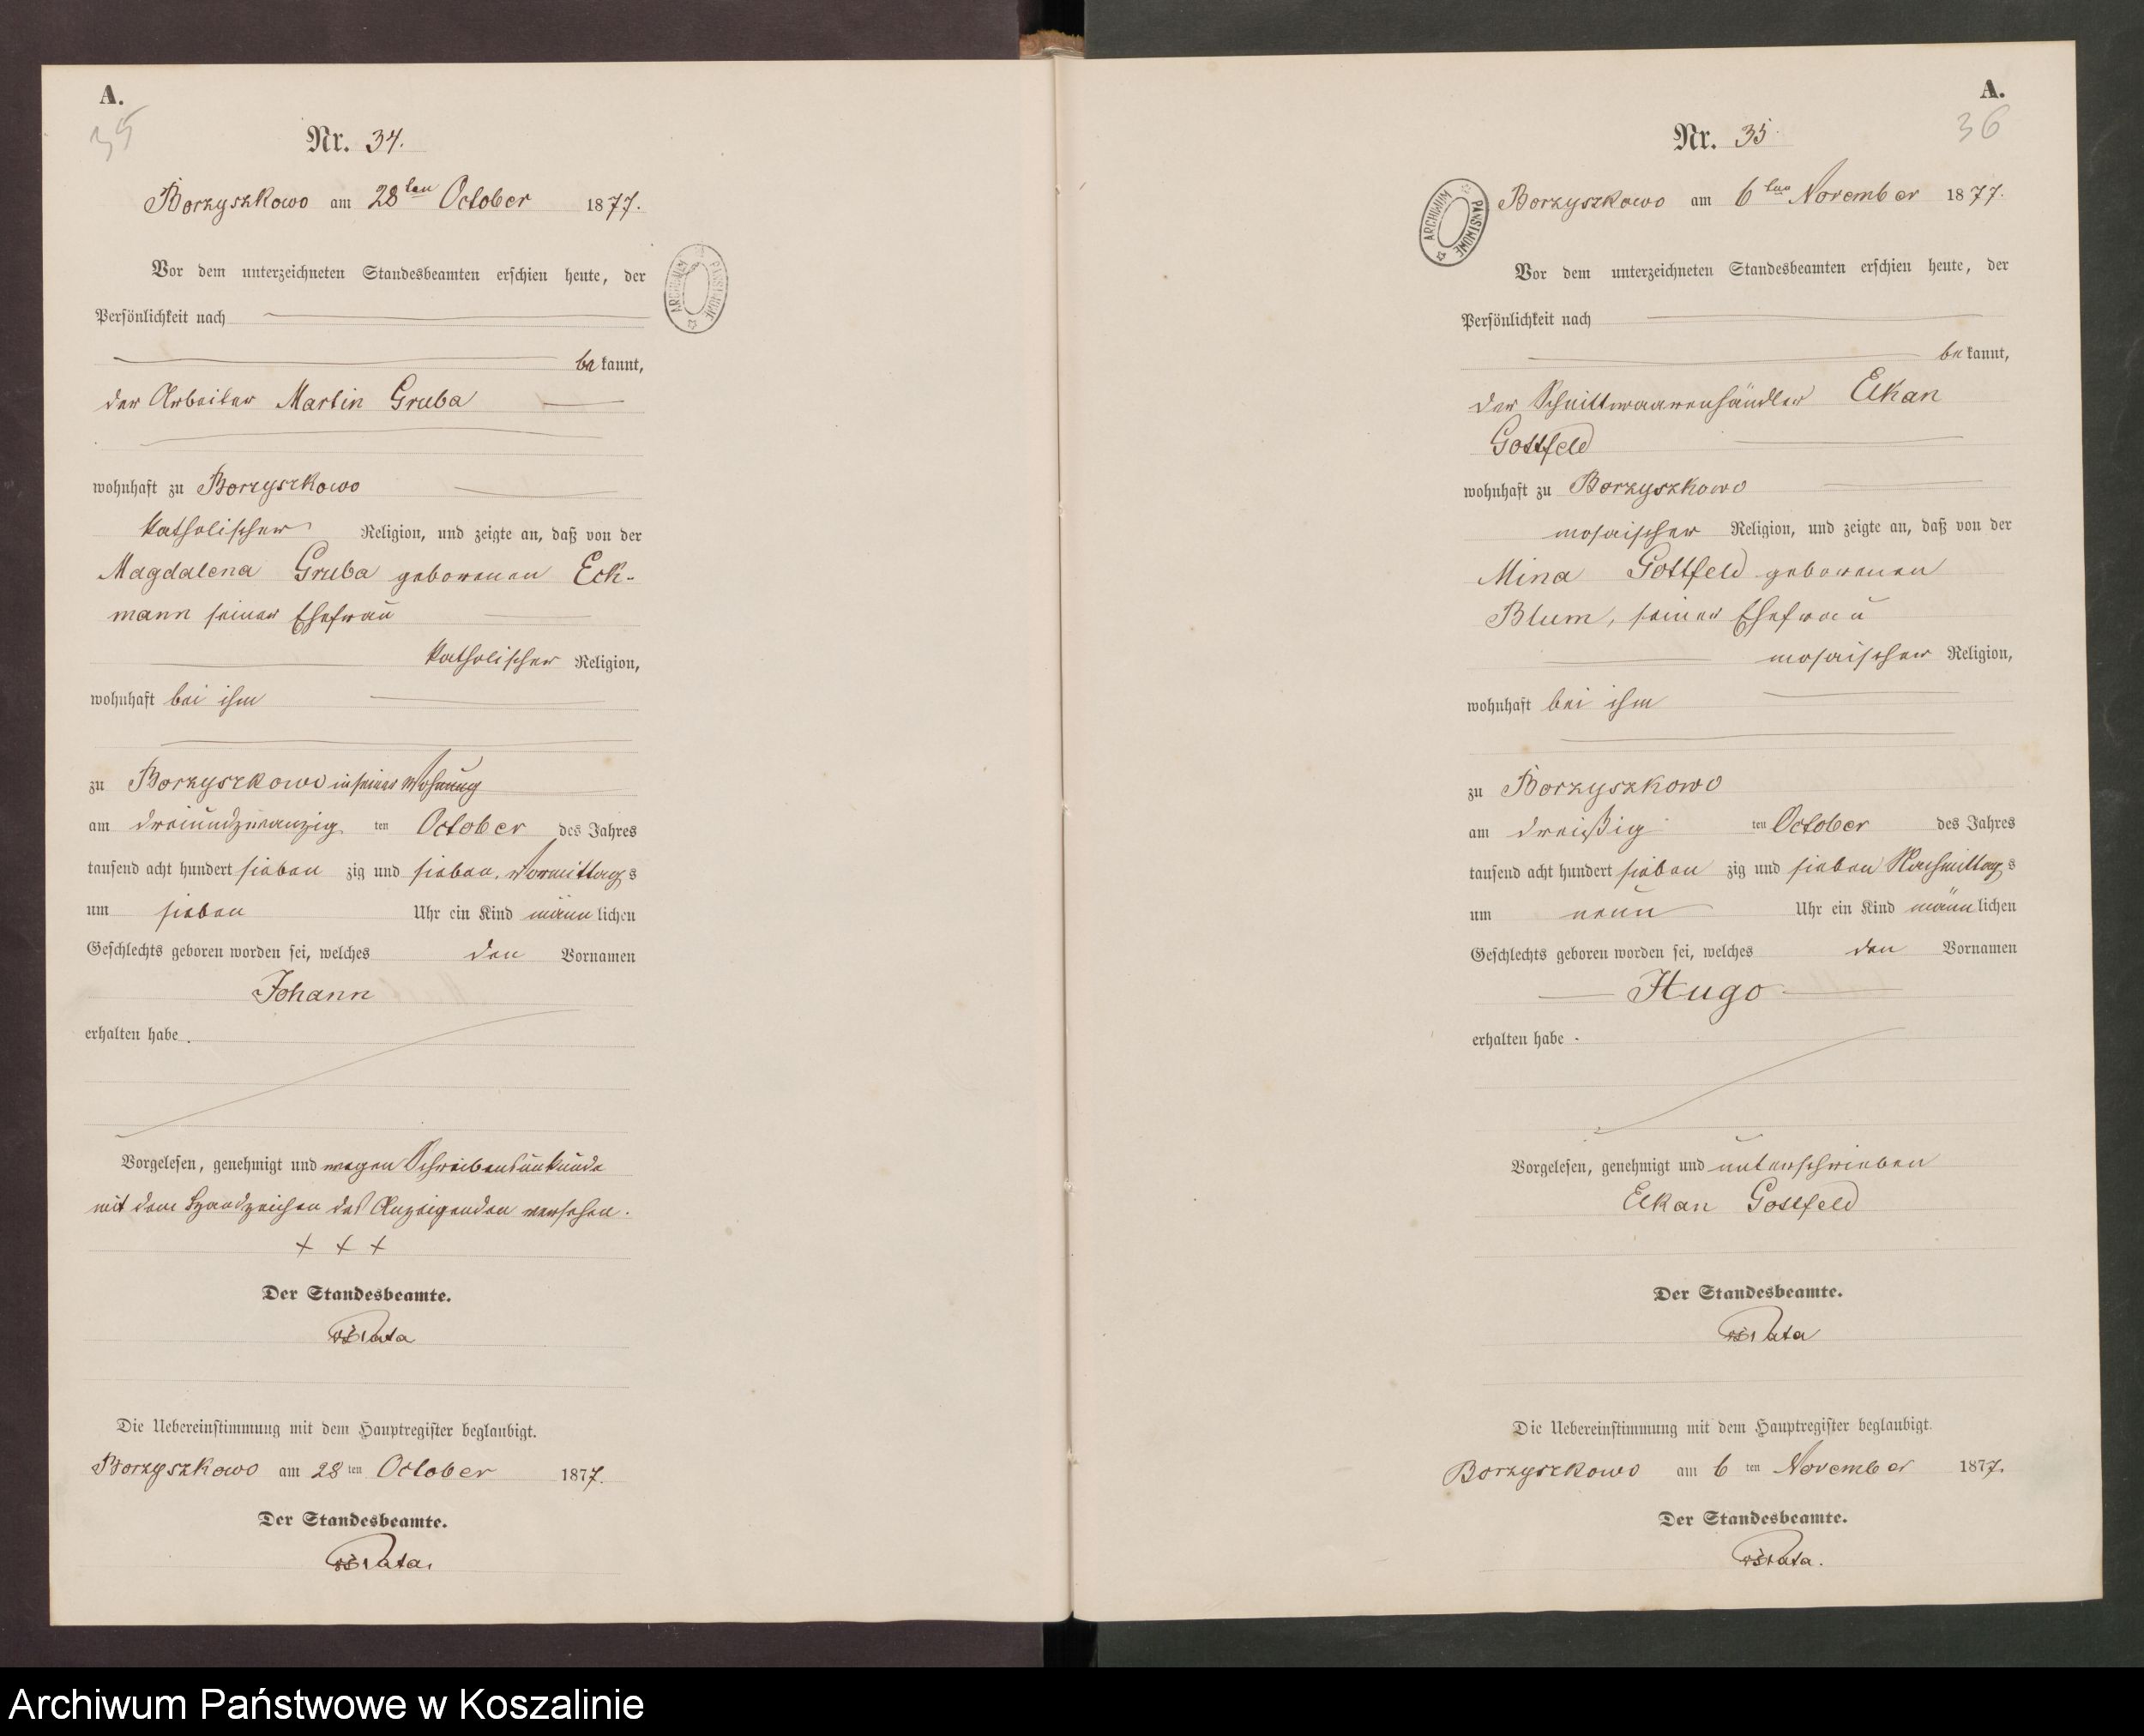 A.
35
Nr. 34.
Borzyszkowo am 28ten October 1877.
Vor dem unterzeichneten Standesbeamten erschien heute, der
Persönlichkeit nach
bekannt,
der Arbeiter Martin Gruba
wohnhaft zu Borzyszkowo
katholischer Religion, und zeigte an, daß von der
Magdalena Gruba geborenen Eck-
mann seiner Ehefrau
katholischer Religion,
wohnhaft bei ihm
zu Borzyszkowo in seiner Wohnung
am dreiundzwanzig ten October des Jahres
tausend acht hundert sieben zig und sieben, Vormittags
um sieben Uhr ein Kind männlichen
Geschlechts geboren worden sei, welches den Vornamen
Johann
erhalten habe.
Vorgelesen, genehmigt und wegen Schreibensunkunde
mit dem Handzeichen des Anzeigenden versehen.
+ + +
Der Standesbeamte.
Die Uebereinstimmung mit dem Hauptregister beglaubigt.
Borzyszkowo am 28 ten October 1877.
Der Standesbeamte.
A.
36
Nr. 35
ARCHIWUM PAŃSTWOWE
Borzyszkowo am 6ten November 1877.
Vor dem unterzeichneten Standesbeamten erschien heute, der
Persönlichkeit nach
bekannt,
der Schnittwaarenhändler Elkan
Gottfeld
wohnhaft zu Borzyszkowo
mosaischer Religion, und zeigte an, daß von der
Mina Gottfeld geborenen
Blum, seiner Ehefrau
mosaischer Religion,
wohnhaft bei ihm
zu Borzyszkowo
am dreißig ten October des Jahres
tausend acht hundert sieben zig und sieben Nachmittags
um neun Uhr ein Kind männlichen
Geschlechts geboren worden sei, welches den Vornamen
Hugo
erhalten habe.
Vorgelesen, genehmigt und unterschrieben
Elkan Gottfeld
Der Standesbeamte.
Die Uebereinstimmung mit dem Hauptregister beglaubigt.
Borzyszkowo am 6 ten November 1877.
Der Standesbeamte.
Archiwum Państwowe w Koszalinie